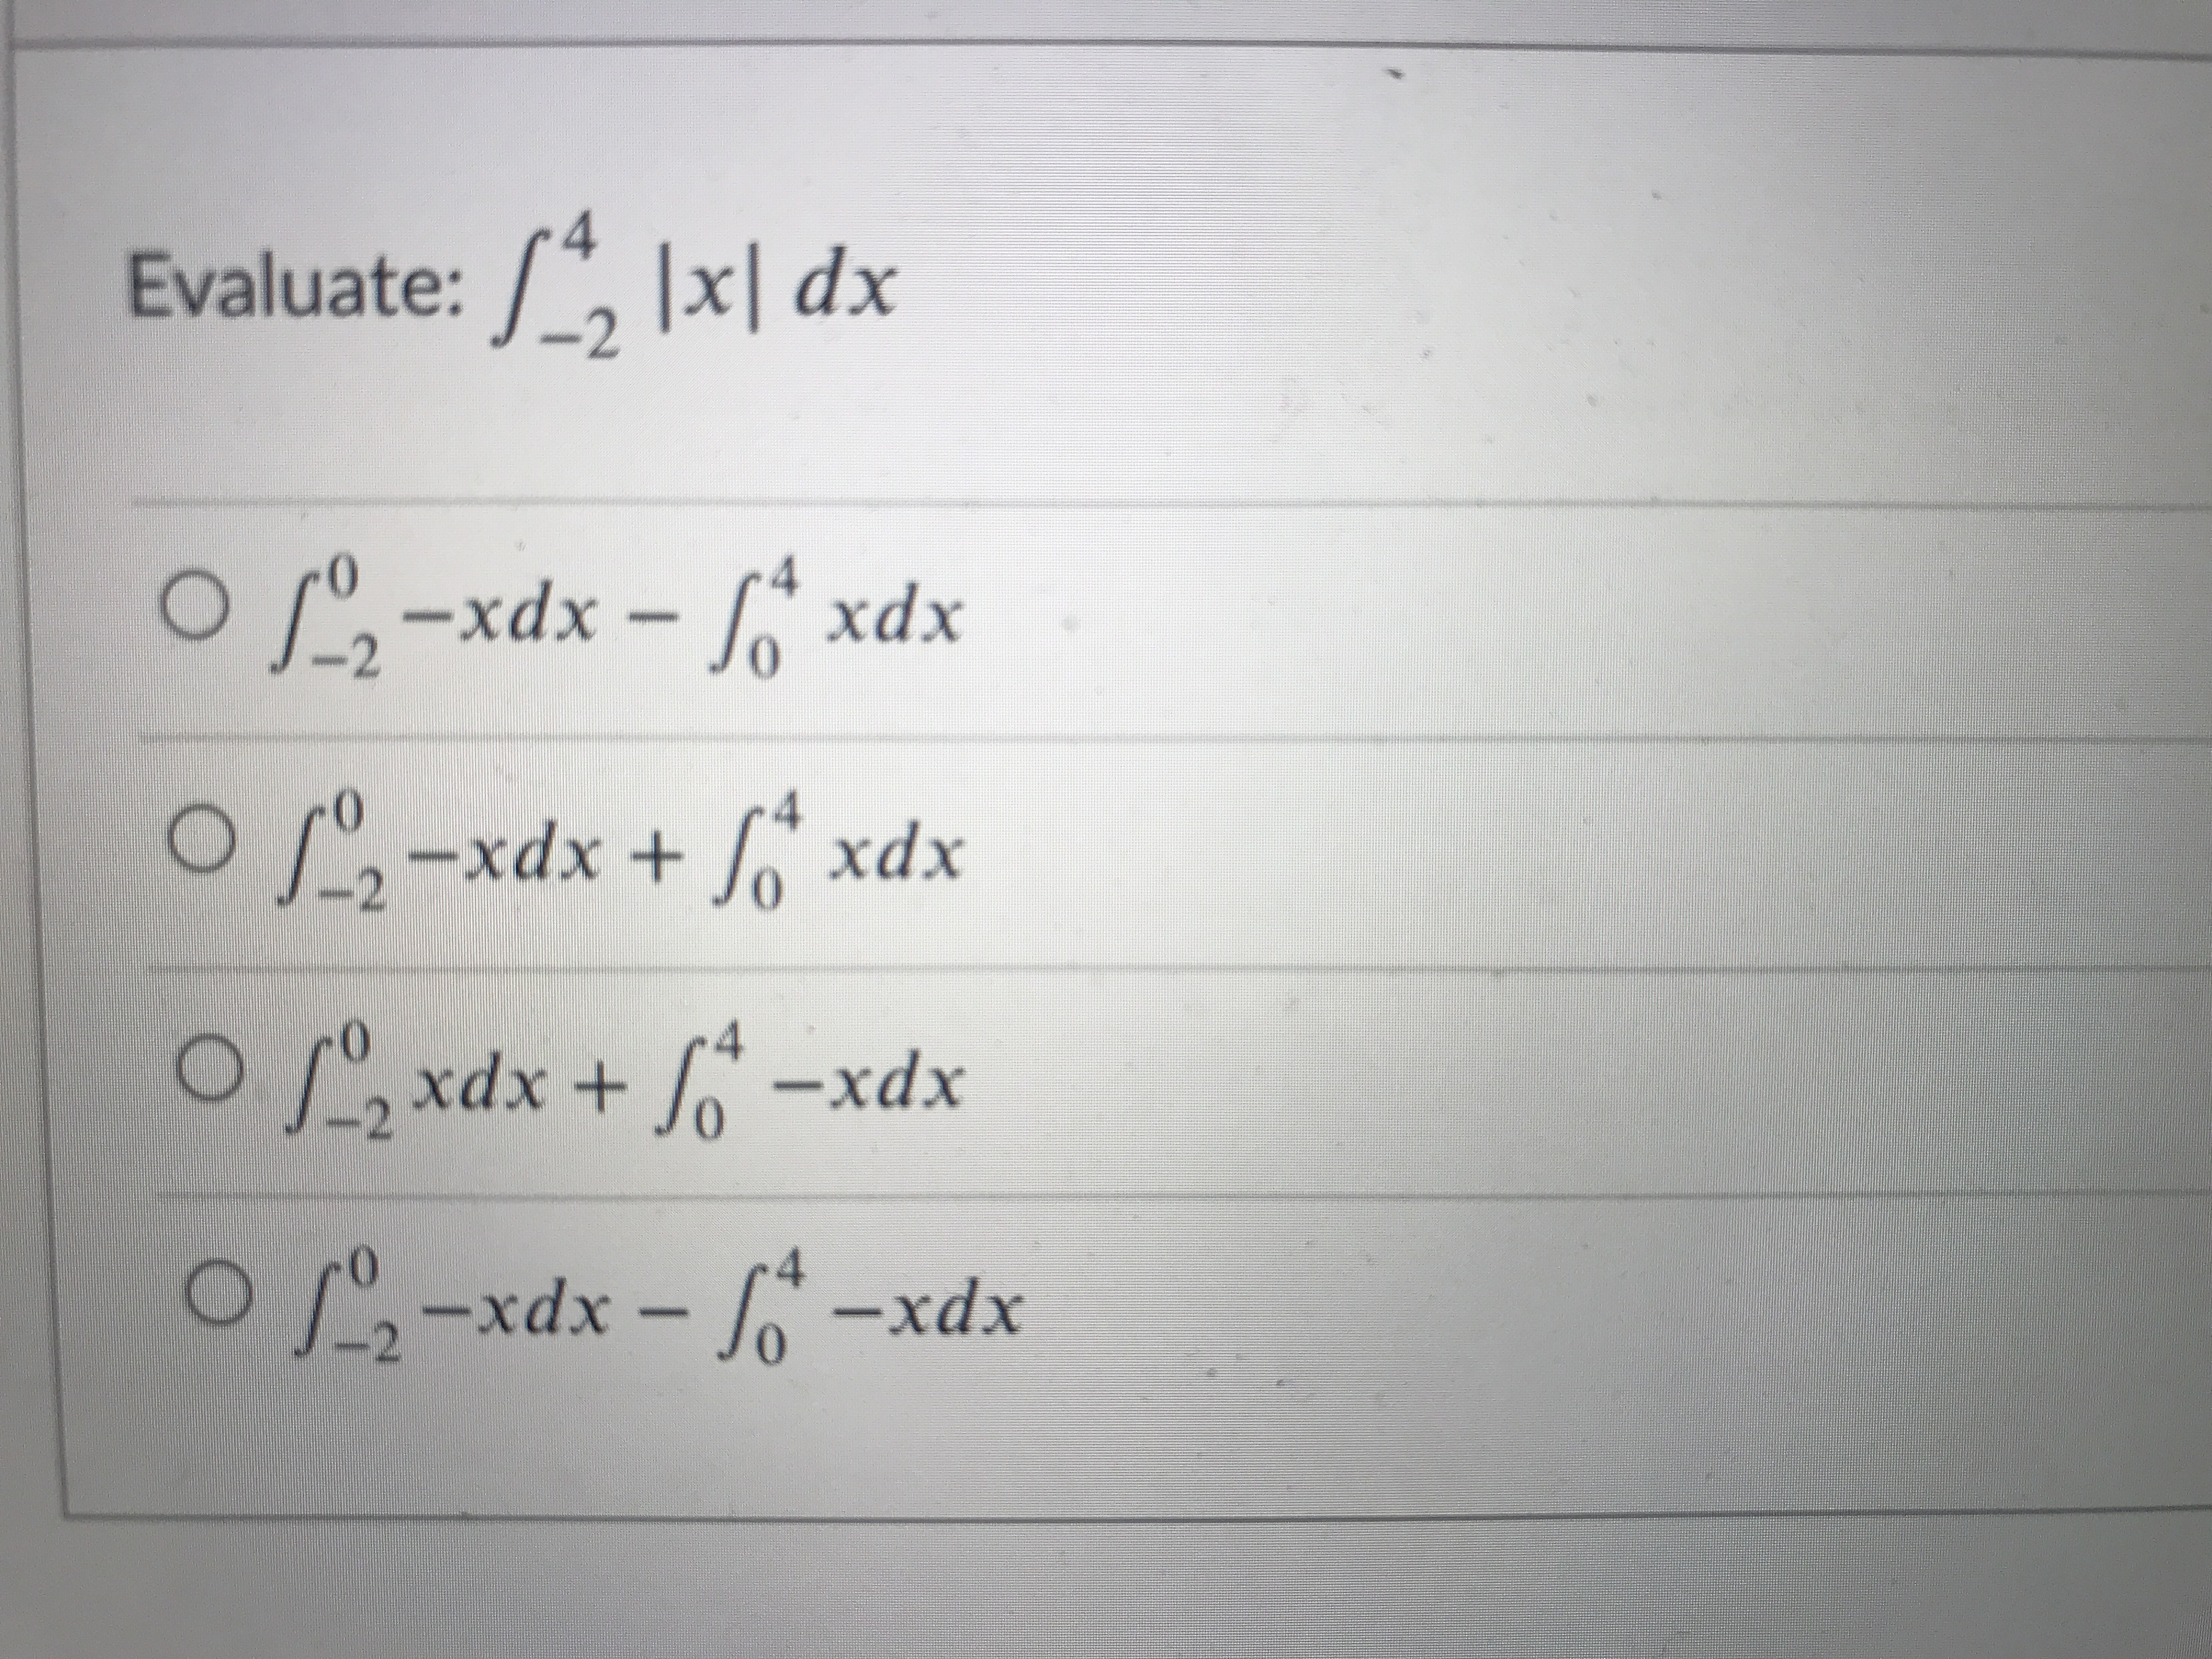 Evaluate: ∫₋₂⁴ |x| dx
∫₋₂⁰ −xdx − ∫₀⁴ xdx
∫₋₂⁰ −xdx + ∫₀⁴ xdx
∫₋₂⁰ xdx + ∫₀⁴ −xdx
∫₋₂⁰ −xdx − ∫₀⁴ −xdx